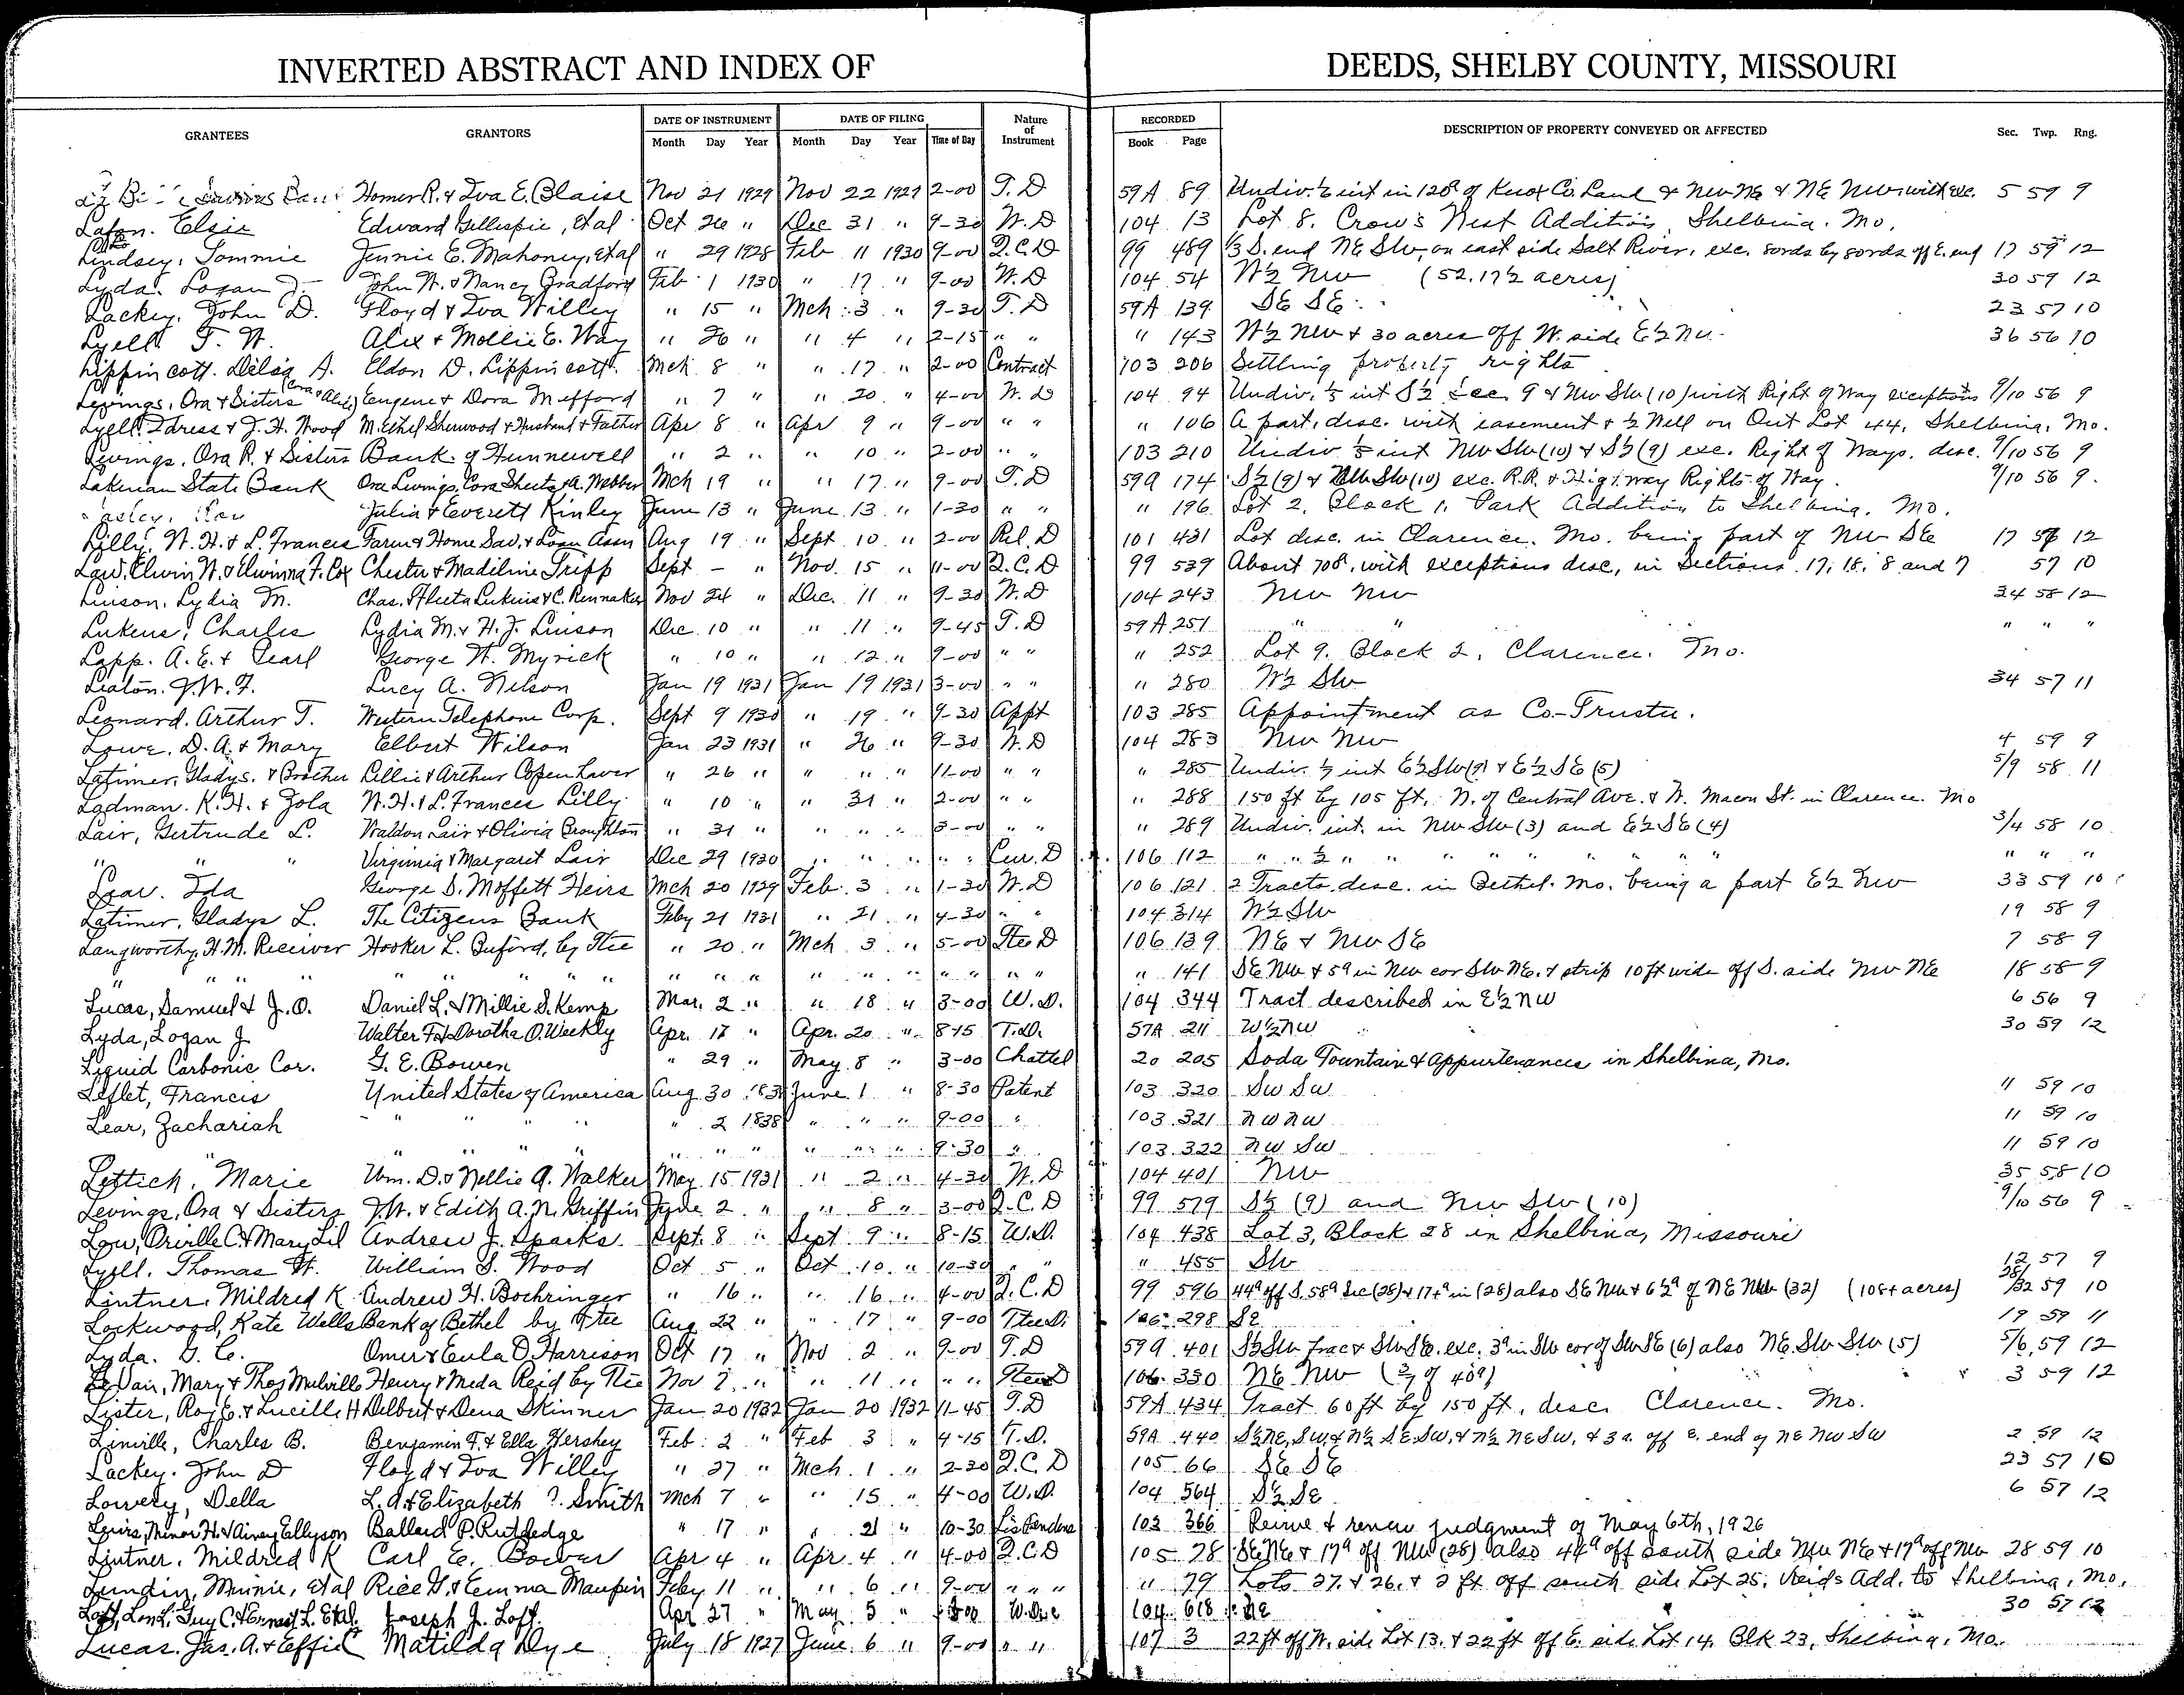 INVERTED ABSTRACT AND INDEX OF DEEDS, SHELBY COUNTY, MISSOURI
GRANTEES GRANTORS DATE OF INSTRUMENT DATE OF FILING Nature of Instrument RECORDED DESCRIPTION OF PROPERTY CONVEYED OR AFFECTED Sec. Twp. Rng.
Month Day Year Month Day Year Time of Day Book Page
Homer R. & Iva E. Blaise Nov 21 1929 Nov 22 1929 2-00 T. D 59A 89 Undiv. ½ int in 120ª of Knox Co. Land & NW NE & NE NW with exc. 5 59 9
Lafon. Elsie Edward Gillespie, etal Oct 26 " Dec 31 " 9-30 W. D 104 13 Lot 8. Crow's Nest Addition, Shelbina. Mo.
Lindsey, Tommie Jennie E. Mahoney, etal " 29 1928 Feb 11 1930 9-00 Q. C. D 99 489 ⅓ S. end NE SW, on east side Salt River, exc. 80rds by 80rds off E. end 17 59 12
Lyda. Logan J. John W. & Nancy Bradford Feb 1 1930 " 17 " 9-00 W. D 104 54 W½ NW (52.17½ acres) 30 59 12
Lackey, John D. Floyd & Iva Willey " 15 " Mch 3 " 9-30 T. D 59A 139 SE SE 23 57 10
Lyell T. W. Alex & Mollie E. Way " 26 " " 4 " 2-15 " " " 143 W½ NW & 30 acres off W. side E½ NW 36 56 10
Lippincott. Delia A. Eldon D. Lippincott. Mch 8 " " 17 " 2-00 Contract 103 206 Settling property rights
Levings, Ora & Sisters (Cora & Alice) Eugene & Dora Mefford " 7 " " 20 " 4-00 W. D 104 94 Undiv. ⅓ int S½ Sec. 9 & NW SW (10) with Right of Way exceptions 9/10 56 9
Lyell. Idress & J. H. Wood M. Ethel Sherwood & Husband & Father Apr 8 " Apr 9 " 9-00 " " " 106 A part, desc. with easement & ½ Well on Out Lot 44, Shelbina, Mo.
Levings, Ora R. & Sisters Bank of Hunnewell " 2 " " 10 " 2-00 " " 103 210 Undiv ⅓ int NW SW (10) & S½ (9) exc. Right of Ways. desc. 9/10 56 9
Lakenan State Bank Ora Levings, Cora Sheets & A. Webber Mch 19 " " 17 " 9-00 T. D 59A 174 S½ (9) & NW SW (10) exc. R.R. & Highway Rights of Way. 9/10 56 9.
Julia & Everett Kinley June 13 " June 13 " 1-30 " " " 196 Lot 2, Block 1, Park Addition to Shelbina, Mo.
Lilly, W. H. & L. Frances Farm & Home Sav. & Loan Assn Aug 19 " Sept 10 " 2-00 Rel. D 101 431 Lot desc. in Clarence. Mo. being part of NW SE 17 57 12
Law, Elwin W. & Elwinna F. Cox Chester & Madeline Tripp Sept - " Nov. 15 " 11-00 Q. C. D 99 539 About 708ª, with exceptions desc, in Sections 17, 18, 8 and 7 57 10
Linson, Lydia M. Chas. & Fleeta Lukens & C. Rennaker Nov 24 " Dec. 11 " 9-30 W. D 104 243 NW NW 34 58 12
Lukens, Charles Lydia M. & H. J. Linson Dec. 10 " " 11 " 9-45 T. D 59A 251 " " " " "
Lapp. A. E. & Pearl George W. Myrick " 10 " " 12 " 9-00 " " " 252 Lot 9. Block 2, Clarence. Mo.
Leaton. J. W. F. Lucy A. Nelson Jan 19 1931 Jan 19 1931 3-00 " " " 280 W½ SW 34 57 11
Leonard. Arthur T. Western Telephone Corp. Sept 9 1930 " 19 " 9-30 Appt 103 285 Appointment as Co-Trustee.
Lowe, D. A. & Mary Elbert Wilson Jan 23 1931 " 26 " 9-30 W. D 104 283 NW NW 4 59 9
Latimer, Gladys. & Brother Lillie & Arthur Copenhaver " 26 " " " " 11-00 " " " 285 Undiv. ⅐ int E½ SW (9) & E½ SE (5) 5/9 58 11
Ladman. K. H. & Zola W. H. & L. Frances Lilly " 10 " " 31 " 2-00 " " " 288 150 ft by 105 ft, N. of Central Ave. & W. Macon St. in Clarence. Mo
Lair, Gertrude L. Waldon Lair & Olivia Broughton " 31 " " " " 3-00 " " " 289 Undiv. int. in NW SW (3) and E½ SE (4) 3/4 58 10
" " " Virginia & Margaret Lair Dec 29 1930 " " " " " Cur. D 106 112 " " ½ " " " " " " " " " "
Lear. Ida George S. Moffett Heirs Mch 20 1929 Feb 3 " 1-30 W. D 106 121 2 Tracts desc. in Bethel. Mo. being a part E½ NW 33 59 10
Latimer, Gladys L. The Citizens Bank Feby 21 1931 " 21 " 4-30 " " 104 314 W½ SW 19 58 9
Langworthy, H. M. Receiver Hooker L. Buford, by Ttee " 20 " Mch 3 " 5-00 Ttee D 106 139 NE & NW SE 7 58 9
" " " " " " " " " " " " " " " " " " 141 SE NW & 5ª in NW cor SW NE. & strip 10 ft wide off S. side NW NE 18 58 9
Lucas, Samuel & J. O. Daniel L. & Millie S. Kemp Mar. 2 " " 18 " 3-00 W. D. 104 344 Tract described in E½ NW 6 56 9
Lyda, Logan J Walter F. & Dorotha O. Weekly Apr. 17 " Apr. 20 " 8-15 T. D. 57A 211 W½ NW 30 59 12
Liquid Carbonic Cor. G. E. Bowen " 29 " May 8 " 3-00 Chattel 20 205 Soda Fountain & Appurtenances in Shelbina, Mo.
Leflet, Francis United States of America Aug 30 June 1 " 8-30 Patent 103 320 SW SW 11 59 10
Lear, Zachariah " " " " " 2 1838 " " " 9-00 " 103 321 NW NW 11 59 10
" " " " " " " " " " " 9-30 " 103 322 NW SW 11 59 10
Lettich, Marie Wm. D. & Nellie A. Walker May 15 1931 " 2 " 4-30 W. D 104 401 NW 35 58 10
Levings, Ora & Sisters J. W. & Edith A. N. Griffin June 2 " " 8 " 3-00 Q. C. D 99 579 S½ (9) and NW SW (10) 9/10 56 9
Low, Orville C. & Mary Lil Andrew J. Sparks Sept. 8 " Sept 9 " 8-15 W. D. 104 438 Lot 3, Block 28 in Shelbina, Missouri
Lyell. Thomas W. William S. Wood Oct 5 " Oct 10 " 10-30 " " " 455 SW 12 57 9
Lintner, Mildred K Andrew H. Boehringer " 16 " " 16 " 4-00 Q. C. D 99 596 44ª off S. 58ª Sec (28) & 17+ª in (28) also SE NW & 6½ª of NE NW (32) (108+ acres) 28/32 59 10
Lockwood, Kate Wells Bank of Bethel by Ttee Aug 22 " " 17 " 9-00 Ttee D. 106 298 SE 17 59 11
Lyda. G. C. Omer & Eula D. Harrison Oct 17 " Nov 2 " 9-00 T. D 59A 401 S½ SW frac & SW SE. exc. 3ª in SW cor of SW SE (6) also NE SW SW (5) 5/6 59 12
LeVair, Mary & Thos Mulville Henry & Meda Reid by Ttee Nov 7 " " 11 " " " Ttee D 106 330 NE NW (3/7 of 40ª) 3 59 12
Lister, Roy E. & Lucille H Delbert & Dena Skinner Jan 20 1932 Jan 20 1932 11-45 T. D 59A 434 Tract 60 ft by 150 ft, desc. Clarence. Mo.
Linville, Charles B. Benjamin F. & Ella Hershey Feb 2 " Feb 3 " 4-15 T. D. 59A 440 S½ NE, SW, & N½ SE. SW, & N½ NE SW, & 3 a. off E. end of NE NW SW 2 59 12
Lackey. John D Floyd & Iva Willey " 27 " Mch 1 " 2-30 Q. C. D 105 66 SE SE 23 57 10
Lowery, Della L. A. & Elizabeth Smith Mch 7 " " 15 " 4-00 W. D. 104 564 S½ SE 6 57 12
Lewis, Minor H. & Ainey Ellyson Ballard P. Rutledge " 17 " " 21 " 10-30 Lis Pendens 103 366 Revive & renew judgment of May 6th, 1926
Lintner, Mildred K Carl E. Bower Apr 4 " Apr. 4 " 4-00 Q. C. D 105 78 SE NE & 17ª off NW (28) also 44ª off south side NW NE & 17ª off NW 28 59 10
Lundin, Minnie, etal Rice G. & Emma Maupin Feby 11 " " 6 " 9-00 " " " " 79 Lots 27. & 26. & 2 ft off south side Lot 25, Reids Add. to Shelbina, Mo.
Guy C. & Ernest L. Etal. Joseph J. Loft. Apr 27 " May 5 " W. D 104 618 NE 30 57 12
Lucas. Jas. A. & Effie Matilda Dye July 18 1927 June 6 " 9-00 " " 107 3 22 ft off W. side Lot 13. & 22 ft off E. side Lot 14. Blk 23, Shelbina, Mo.